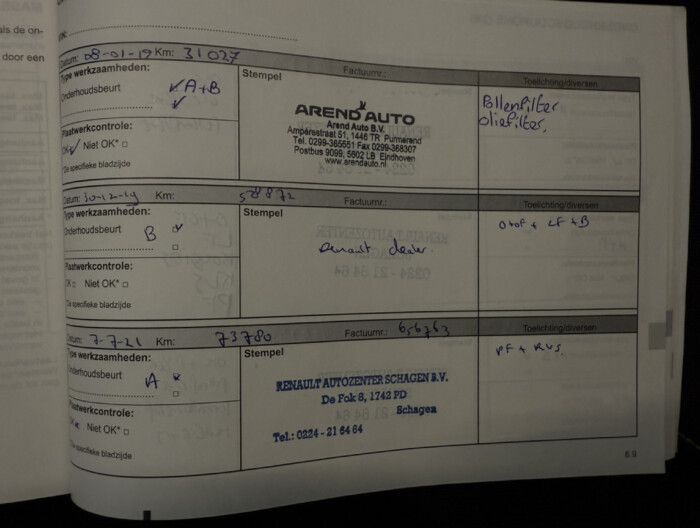 als de on-
door een
Datum: 08-01-19 Km: 31027 Factuurnr.: Toelichting/diversen
Type werkzaamheden:
Onderhoudsbeurt A+B
Plaatwerkcontrole:
OK Niet OK*
*Zie specifieke bladzijde
Stempel
AREND AUTO
Arend Auto B.V.
Ampèrestraat 51, 1446 TR Purmerend
Tel. 0299-365551 Fax 0299-368307
Postbus 9099, 5602 LB Eindhoven
www.arendauto.nl
Pollenfilter
oliefilter.
Datum: 30-12-19 Km: 58872 Factuurnr.: Toelichting/diversen
Type werkzaamheden:
Onderhoudsbeurt B
Plaatwerkcontrole:
OK Niet OK*
*Zie specifieke bladzijde
Stempel
Renault dealer
O+oF + LF + B
Datum: 7-7-21 Km: 73780 Factuurnr.: 656763 Toelichting/diversen
Type werkzaamheden:
Onderhoudsbeurt A
Plaatwerkcontrole:
OK Niet OK*
*Zie specifieke bladzijde
Stempel
RENAULT AUTOZENTER SCHAGEN B.V.
De Fok 8, 1742 PD
Schagen
Tel.: 0224 - 21 64 64
PF + RVS.
6.9